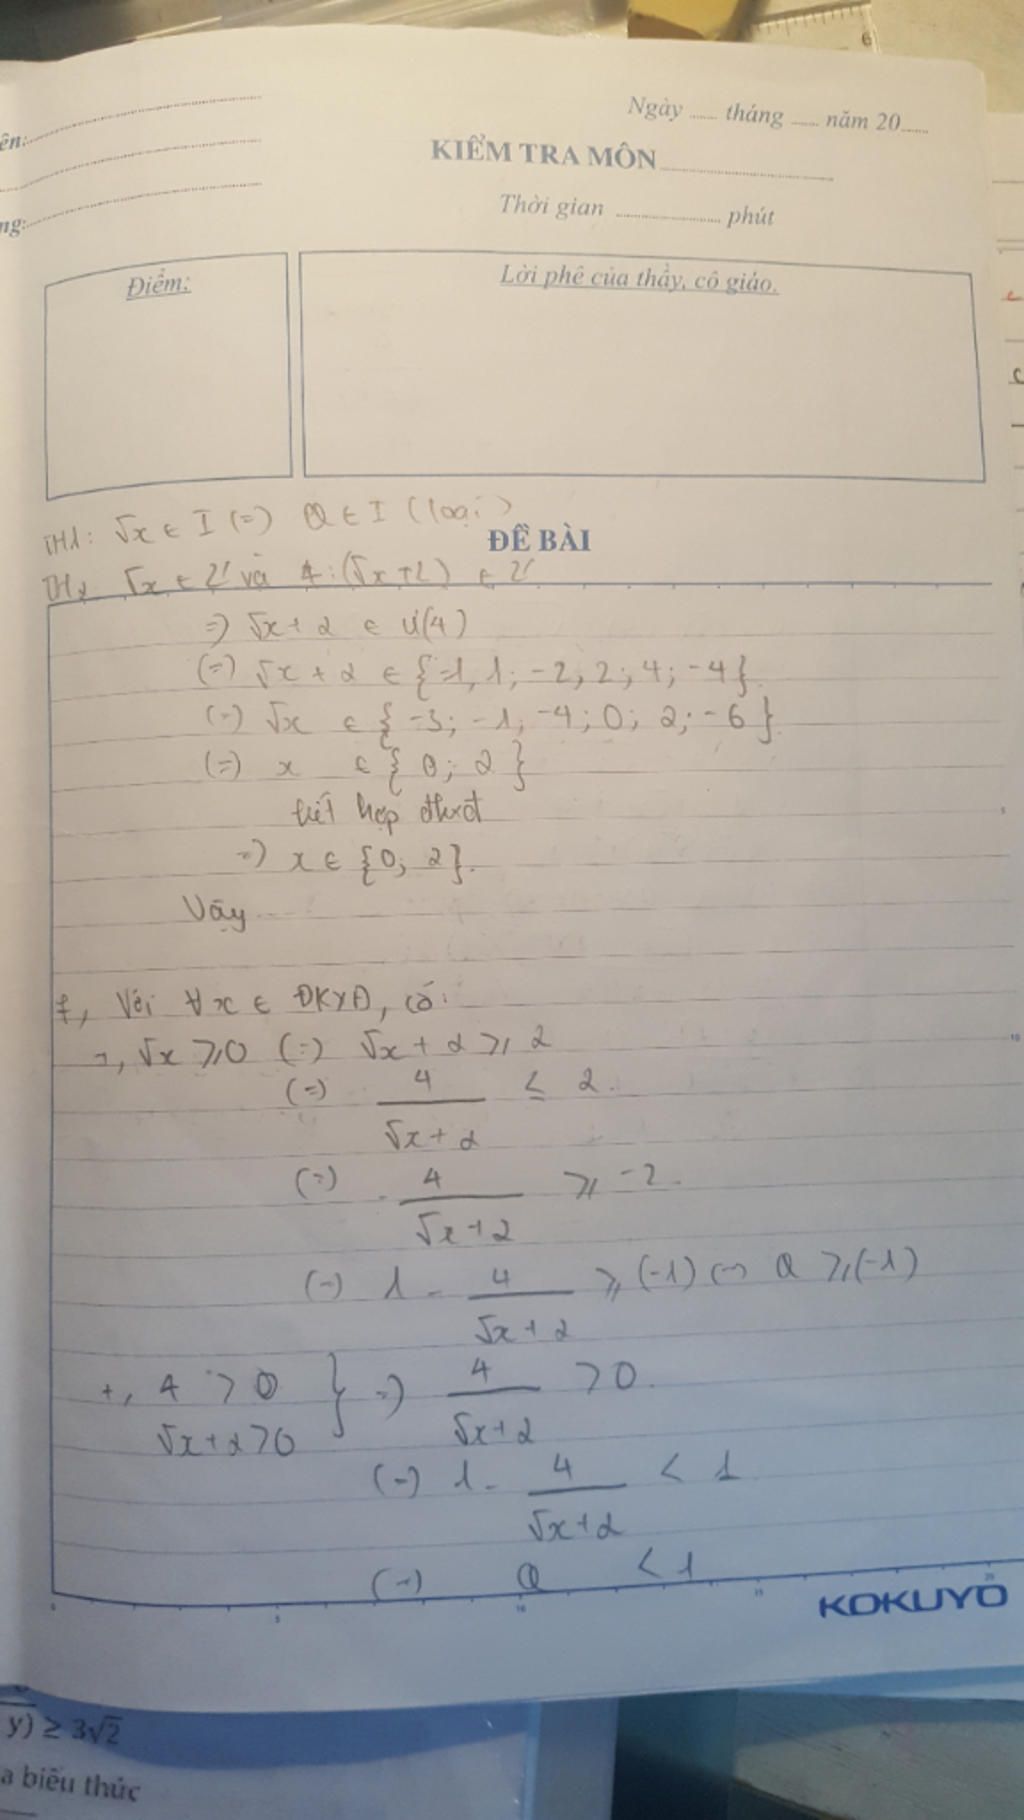 Ngày ...... tháng ...... năm 20......
ên:
KIỂM TRA MÔN
Thời gian ...................... phút
ng:
Điểm:
Lời phê của thầy, cô giáo.
TH1: √x ∈ I (=) Q ∈ I (loại)
ĐỀ BÀI
TH2 √x ∈ Z và 4:(√x+2) ∈ Z
=) √x + 2 ∈ Ư(4)
(=) √x + 2 ∈ {-1, 1; -2; 2; 4; -4}
(=) √x ∈ {-3; -1; -4; 0; 2; -6}
(=) x ∈ {0; 2}
kết hợp đkxđ
=) x ∈ {0; 2}.
Vậy
f, Với ∀x ∈ ĐKXĐ, có:
+, √x ⩾ 0 (=) √x + 2 ⩾ 2
(=) 4/(√x + 2) ≤ 2.
(=) -4/(√x + 2) ⩾ -2.
(=) 1 - 4/(√x + 2) ⩾ (-1) (=) Q ⩾ (-1)
+, 4 > 0 } =) 4/(√x + 2) > 0.
√x + 2 > 0
(=) 1 - 4/(√x + 2) < 1
(=) Q < 1
KOKUYO
y) ≥ 3√2
a biểu thức